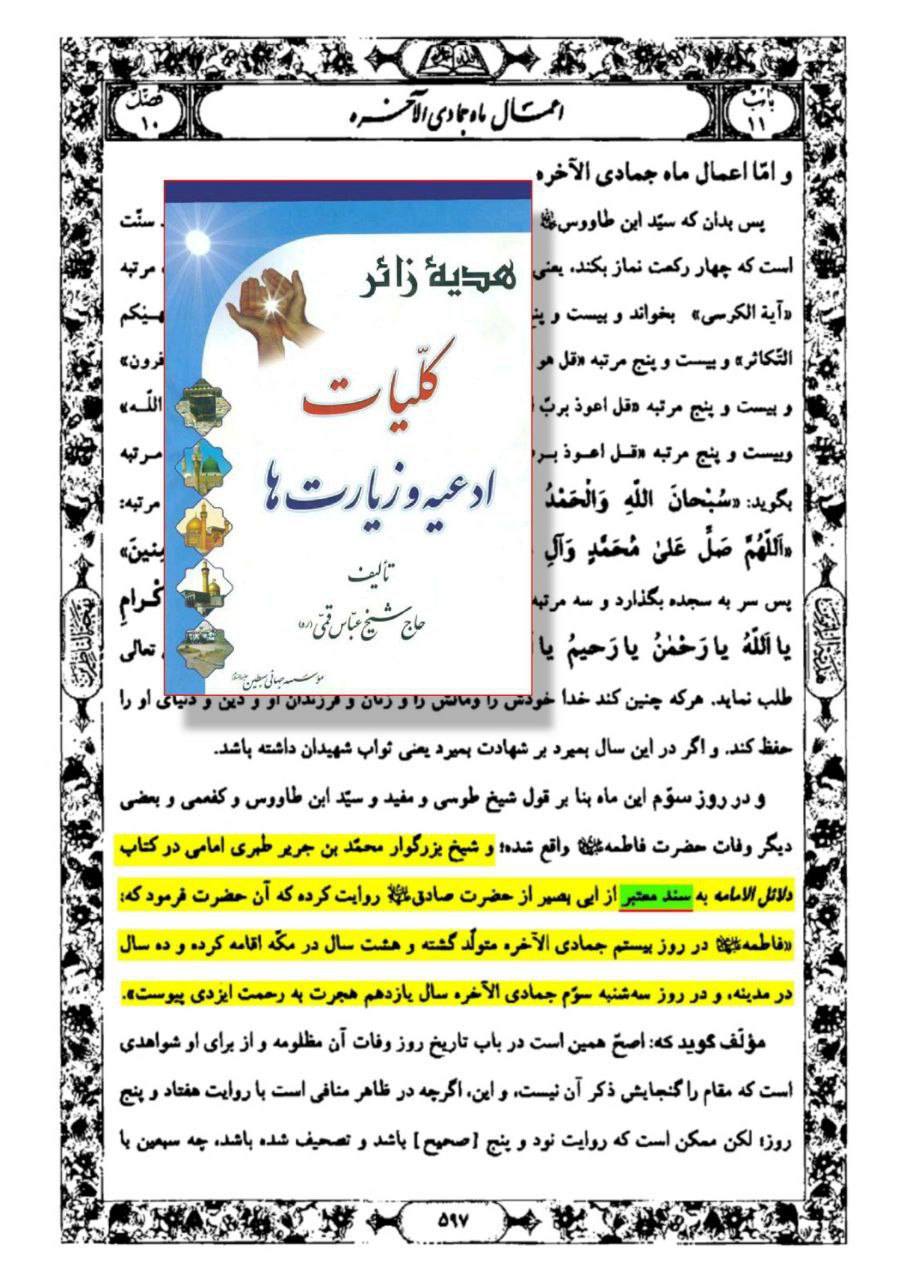 باب ۱۱
اعمال ماه جمادی الآخره
فصل ۱۰
و امّا اعمال ماه جمادی الآخره
پس بدان که سیّد ابن طاووس سنّت
است که چهار رکعت نماز بکند، یعنی مرتبه
«آیة الکرسی» بخواند و بیست و پنج
التّکاثر» و بیست و پنج مرتبه «قل هو
و بیست و پنج مرتبه «قل اعوذ بربّ اللّـه»
وبیست و پنج مرتبه «قـل اعـوذ بـر مـرتبه
بگوید: «سُبْحانَ اللّهِ وَالْحَمْدُ مرتبه:
«اَللّهُمَّ صَلِّ عَلىٰ مُحَمَّدٍ وَآلِ
پس سر به سجده بگذارد و سه مرتبه
یا اَللّهُ یا رَحْمٰنُ یا رَحیمُ یا تعالی
طلب نماید. هرکه چنین کند خدا خودش را ومالش را و زنان و فرزندان او و دین و دنیای او را
حفظ کند. و اگر در این سال بمیرد بر شهادت بمیرد یعنی ثواب شهیدان داشته باشد.
و در روز سوّم این ماه بنا بر قول شیخ طوسی و مفید و سیّد ابن طاووس و کفعمی و بعضی
دیگر وفات حضرت فاطمه واقع شده؛ و شیخ بزرگوار محمّد بن جریر طبری امامی در کتاب
دلائل الامامه به سند معتبر از ابی بصیر از حضرت صادق روایت کرده که آن حضرت فرمود که:
«فاطمه در روز بیستم جمادی الآخره متولّد گشته و هشت سال در مکّه اقامه کرده و ده سال
در مدینه، و در روز سه‌شنبه سوّم جمادی الآخره سال یازدهم هجرت به رحمت ایزدی پیوست».
مؤلّف گوید که: اصحّ همین است در باب تاریخ روز وفات آن مظلومه و از برای او شواهدی
است که مقام را گنجایش ذکر آن نیست، و این، اگرچه در ظاهر منافی است با روایت هفتاد و پنج
روز؛ لکن ممکن است که روایت نود و پنج [صحیح] باشد و تصحیف شده باشد، چه سبعین با
۵۹۷
هدیهٔ زائر
کلّیات
ادعیه و زیارت ها
تألیف
حاج شیخ عبّاس قمّی (ره)
مؤسسه جهانی سبطین